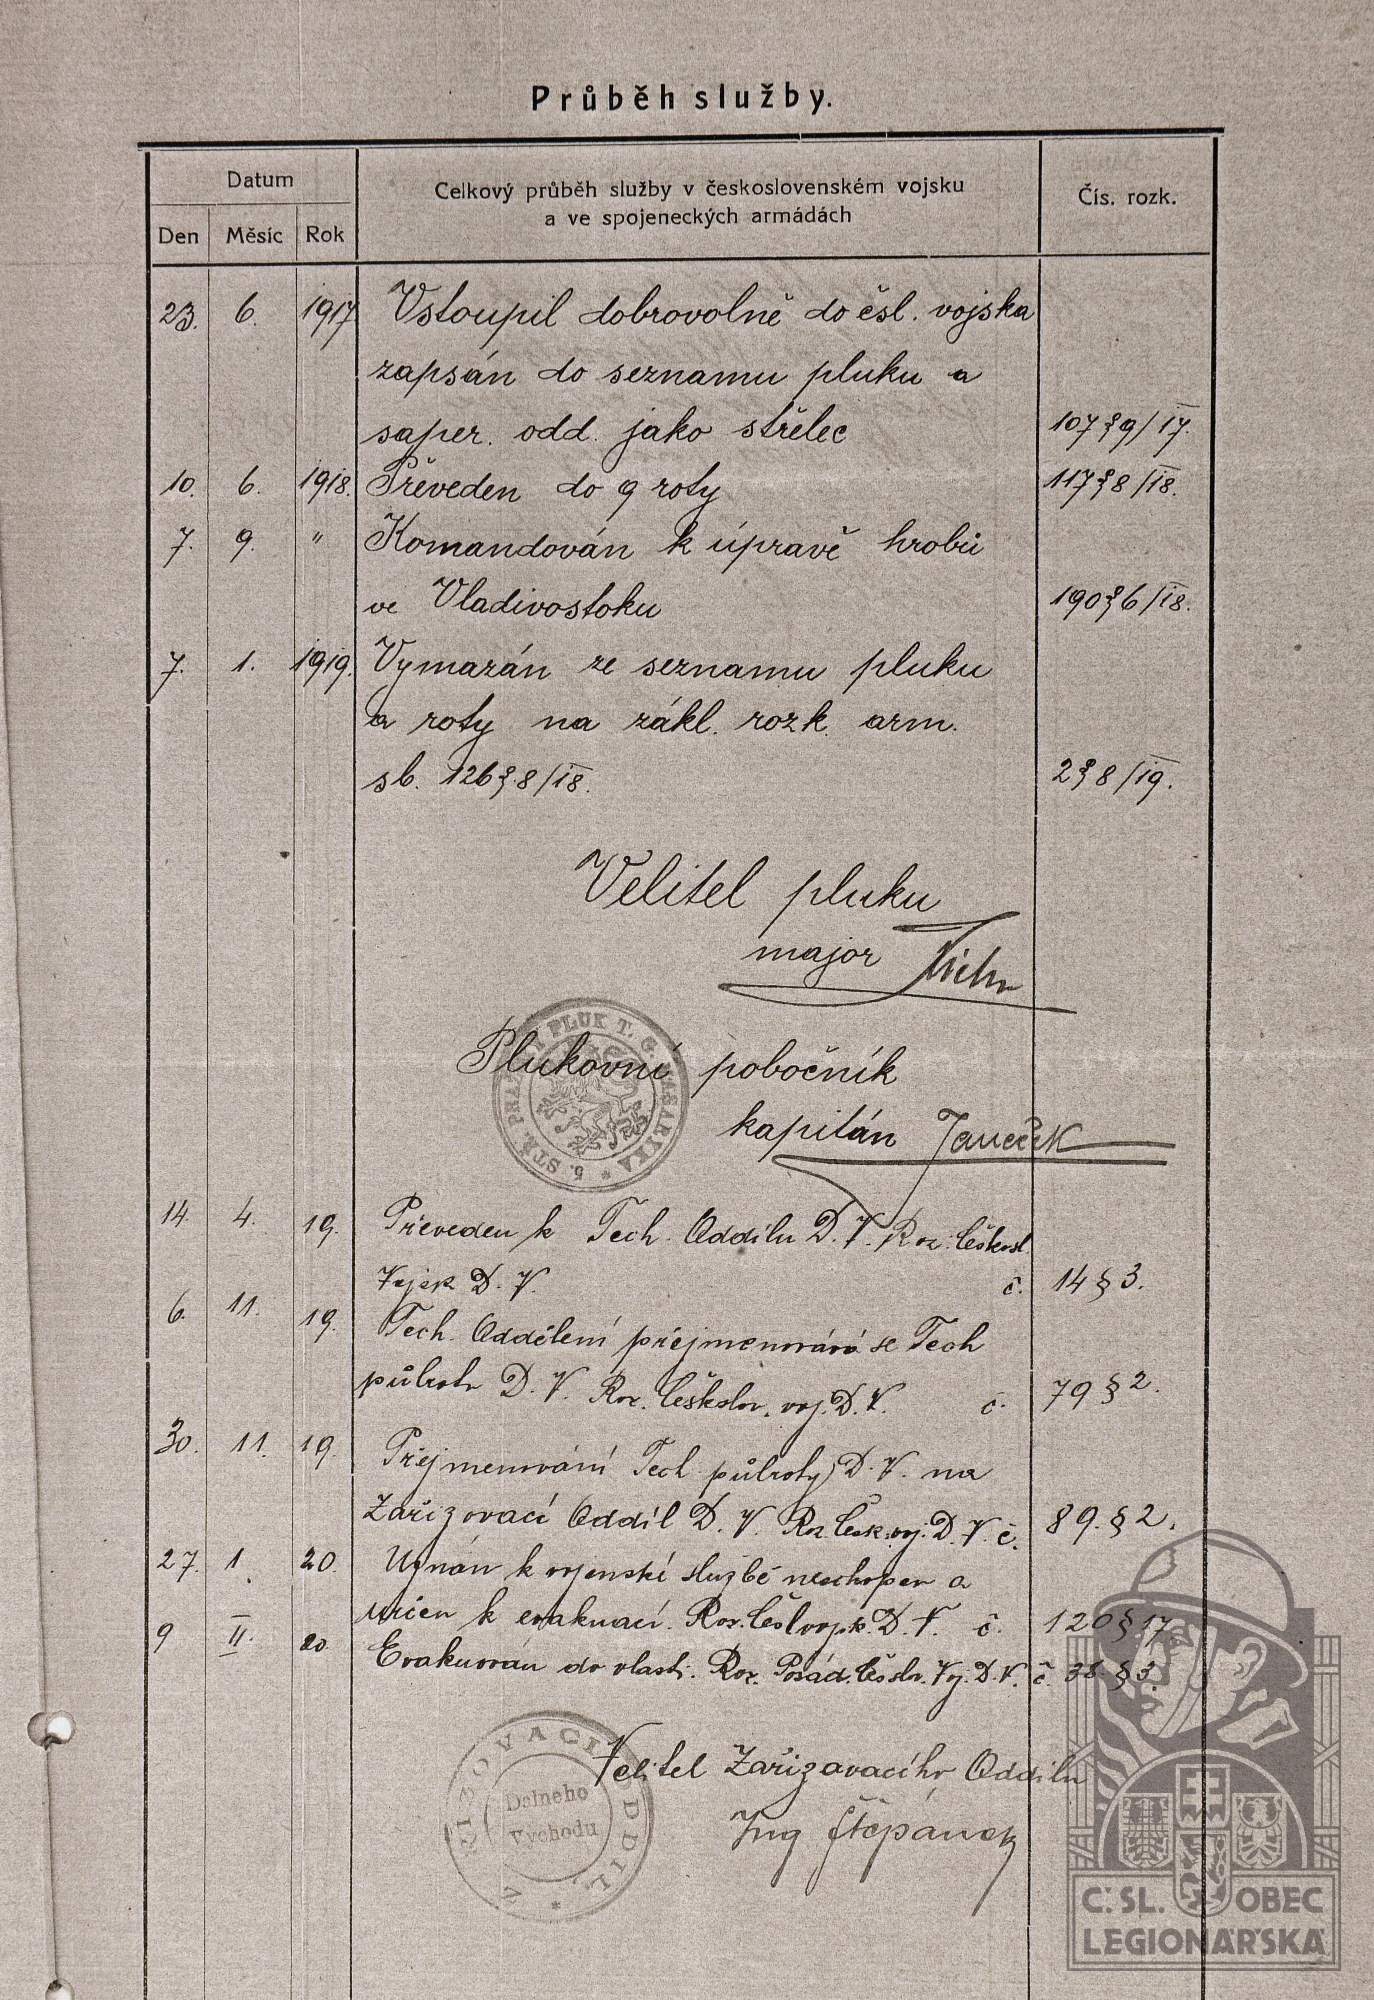 Průběh služby.
Datum
Celkový průběh služby v československém vojsku
a ve spojeneckých armádách
Čís. rozk.
Den Měsíc Rok
23. 6. 1917 Vstoupil dobrovolně do čsl. vojska
zapsán do seznamu pluku a
saper. odd. jako střelec 107 § 9/17.
10. 6. 1918. Převeden do 9 roty 117 § 8/18.
7. 9. " Komandován k úpravě hrobů
ve Vladivostoku 190 § 6/18.
7. 1. 1919. Vymazán ze seznamu pluku
a roty na zákl. rozk. arm.
sb. 126 § 8/18. 2 § 8/19.
Velitel pluku
major
Plukovní pobočník
kapitán Janeček
5. STŘ. PRAŽSKÝ PLUK T. G. MASARYKA *
14. 4. 19. Převeden k Tech. Oddílu D. V. Roz. Českosl.
Vojsk D. V. č. 14 § 3.
6. 11. 19. Tech. Oddělení přejmenováno se Tech
půlrotu D. V. Roz. Českslov. voj. D. V. č. 79 § 2.
30. 11. 19. Přejmenování Tech půlroty D. V. na
Zařizovací Oddíl D. V. Roz. Česk. voj. D. V. č. 89. § 2.
27. 1. 20. Uznán k vojenské službě neschopen a
určen k evakuaci. Roz. Čsl vojsk. D. V. č. 120 § 17
9 II. 20. Evakuován do vlasti. Roz. Posád. Česslov. Voj. D. V. č. 38. § 3.
Velitel Zařizovacího Oddílu
Ing Štěpánek
ZAŘIZOVACI ODDIL *
Dalneho
Vychodu
Č. SL. OBEC
LEGIONÁŘSKÁ